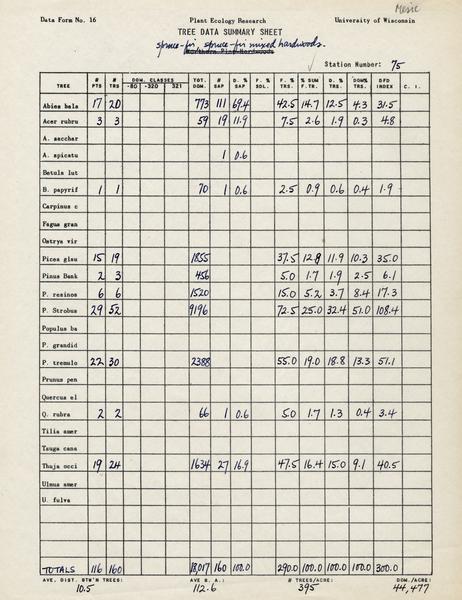 Mesic
Data Form No. 16 Plant Ecology Research University of Wisconsin
TREE DATA SUMMARY SHEET
spruce-fir, spruce-fir mixed hardwoods.
Northern Pine Hardwoods
Station Number: 75
TREE # PTS # TRS DOM. CLASSES -80 -320 321 TOT. DOM. # SAP D. % SAP F. % SDL. F. % TRS. % SUM F.TR. D. % TRS. DOM% TRS. DFD INDEX C. I.
Abies bala 17 20 773 111 69.4 42.5 14.7 12.5 4.3 31.5
Acer rubru 3 3 59 19 11.9 7.5 2.6 1.9 0.3 4.8
A. sacchar
A. spicatu 1 0.6
Betula lut
B. papyrif 1 1 70 1 0.6 2.5 0.9 0.6 0.4 1.9
Carpinus c
Fagus gran
Ostrya vir
Picea glau 15 19 1855 37.5 12.8 11.9 10.3 35.0
Pinus Bank 2 3 456 5.0 1.7 1.9 2.5 6.1
P. resinos 6 6 1520 15.0 5.2 3.7 8.4 17.3
P. Strobus 29 52 9196 72.5 25.0 32.4 51.0 108.4
Populus ba
P. grandid
P. tremulo 22 30 2388 55.0 19.0 18.8 13.3 51.1
Prunus pen
Quercus el
Q. rubra 2 2 66 1 0.6 5.0 1.7 1.3 0.4 3.4
Tilia amer
Tsuga cana
Thuja occi 19 24 1634 27 16.9 47.5 16.4 15.0 9.1 40.5
Ulmus amer
U. fulva
TOTALS 116 160 18,017 160 100.0 290.0 100.0 100.0 100.0 300.0
AVE. DIST. BTW'N TREES: AVE B. A.: # TREES/ACRE: DOM./ACRE:
10.5 112.6 395 44,477